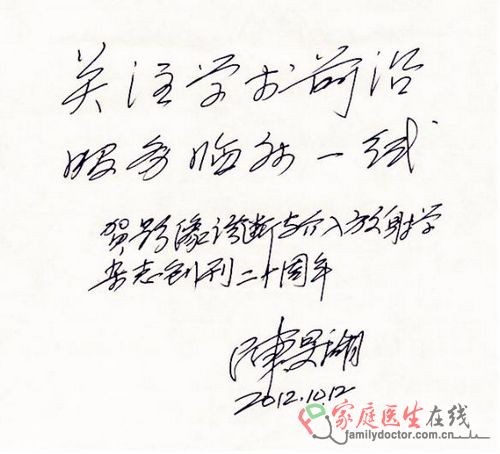 关注学术前沿
服务临床一线
贺影像诊断与介入放射学
杂志创刊二十周年
2012.10.12
家庭医生在线
familydoctor.com.cn